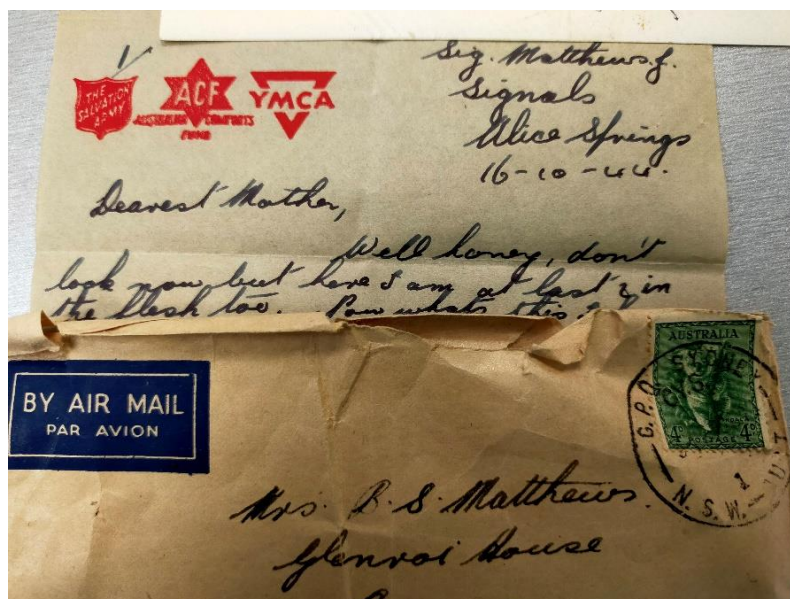 THE
SALVATION
ARMY
ACF
AUSTRALIAN COMFORTS
FUND
YMCA
Sig. Matthews. J.
Signals
Alice Springs
16-10-44.
Dearest Mother,
Well honey, don't
look now but here I am at last & in
the flesh too. whats this
BY AIR MAIL
PAR AVION
AUSTRALIA
4D 4D
POSTAGE
G.P.O. SYDNEY
N.S.W.
1
Mrs. B. S. Matthews.
Glenroi House